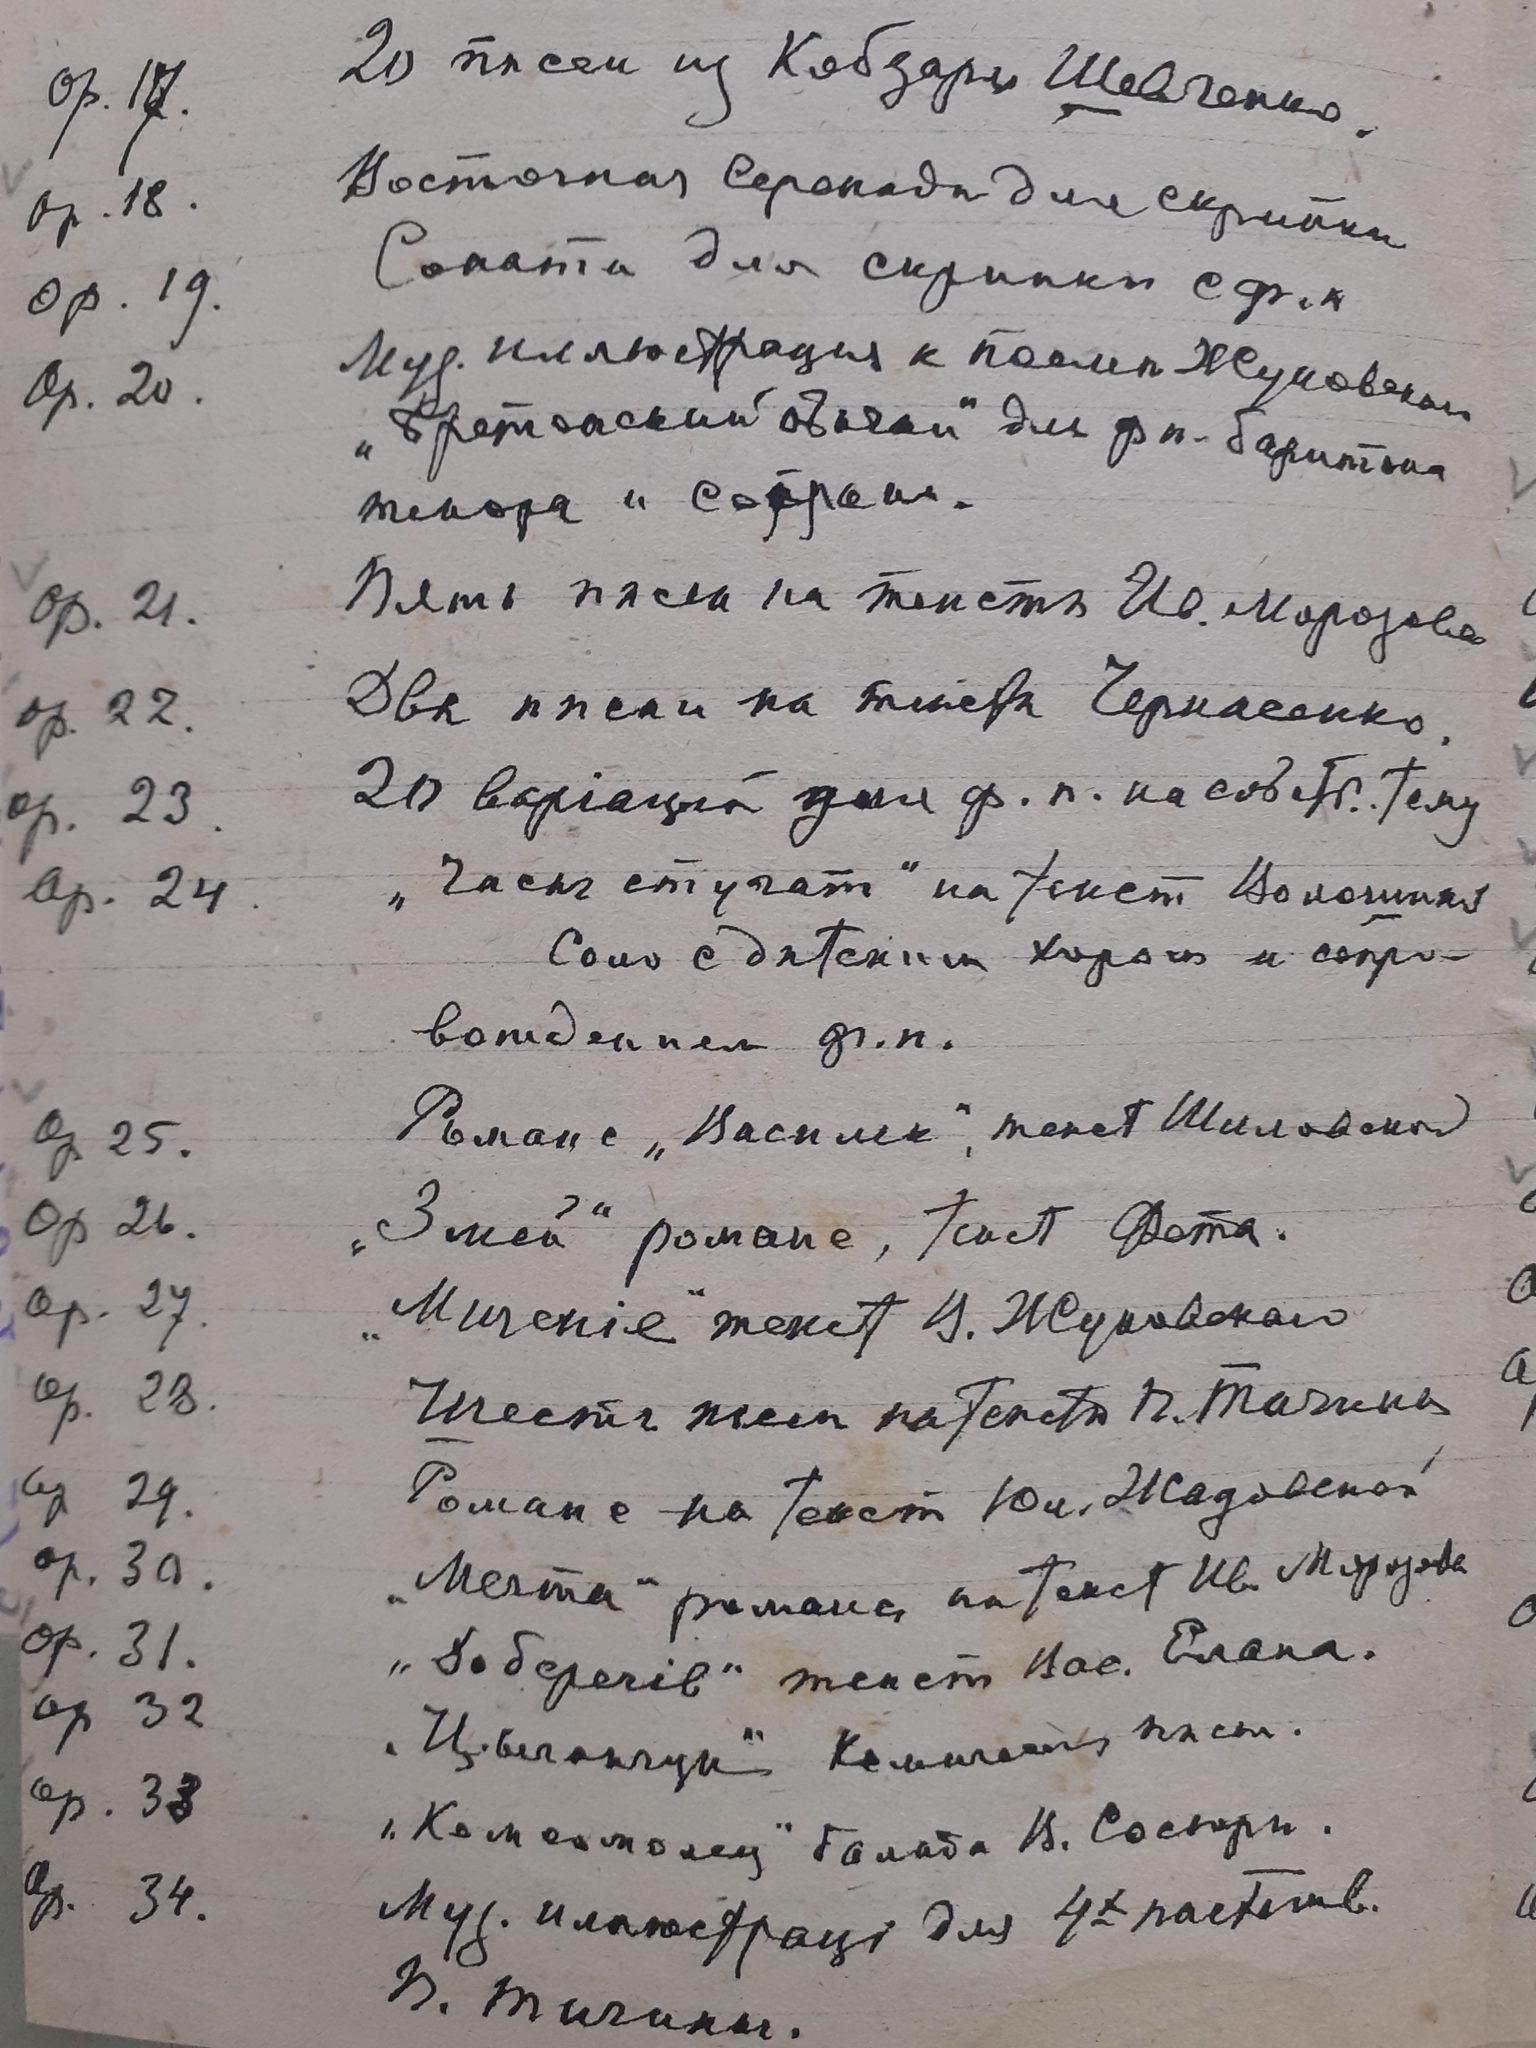 Op. 17. 20 пѣсен из Кобзаря Шевченко.
Op. 18. Восточная Серенада для скрипки
Op. 19. Соната для скрипки с ф. п
Op. 20. Муз. иллюстрация к поэмѣ Жуковского
для ф п. баритона
тенора и сопрано.
Op. 21. Пять пѣсен на тексты Ив. Морозова
Op. 22. Двѣ пѣсни на тексты Черкасенко.
Op. 23. 20 варіаций для ф. п. на собств. тему
Op. 24. „Часы стучат" на текст Волошина
Соло с дѣтским хором и сопро-
вождением ф. п.
Op 25. Романс „Василек", текст Шиловской
Op 26. „Змей" романс, текст Фета.
Op. 27. „Мщеніе" текст В. Жуковского
Op. 28. Шесть пѣсен на тексты П. Тычины
Op 29. Романс на текст Юл. Жадовской
Op. 30. „Мечта" романс, на текст Ив. Морозова
Op. 31. текст Вас. Елана.
Op 32 „Цыганчук"
Op. 33 „Комсомолец" балада В. Сосюры.
Op. 34. Муз. иллюстраці для 4х
П. Тичины.